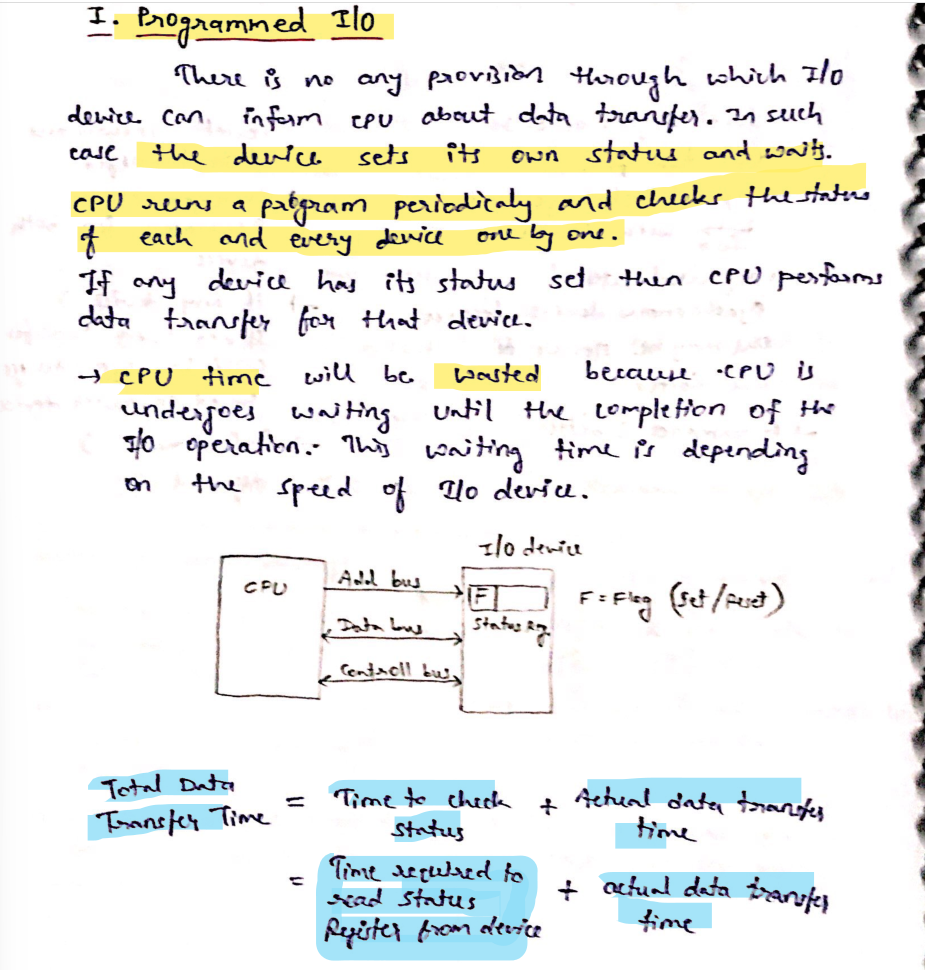 I. Programmed I/O
There is no any provision through which I/O
device can inform CPU about data transfer. In such
case the device sets its own status and waits.
CPU runs a program periodicaly and checks the status
of each and every device one by one.
If any device has its status set then CPU performs
data transfer for that device.
→ CPU time will be wasted because CPU is
undergoes waiting until the completion of the
I/O operation. This waiting time is depending
on the speed of I/O device.
I/O device
CPU
Add bus
F
F = Flag (set/reset)
Data bus
Status Reg.
Controll bus
Total Data
Transfer Time = Time to check status + Actual data transfer time
= Time required to read status Register from device + actual data transfer time